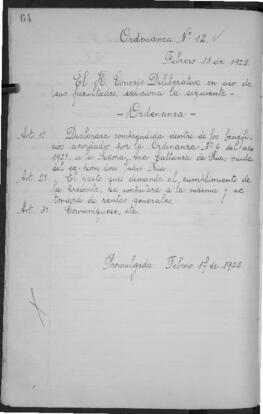 64
Ordenanza Nº 12.
Febrero 13 de 1922.
El H. Concejo Deliberante en uso de
sus facultades, sanciona la siguiente -
- Ordenanza -
Art. 1º Declarase comprendida dentro de los benefi-
cios acordados por la Ordenanza Nº 6 del año
1921, a la Señora Ana de Rua, viuda
del ex-peon Juan Rua.
Art. 2º El gasto que demande el cumplimiento de
la presente, se imputará a la misma y se
tomará de rentas generales.
Art. 3º Comuníquese, etc
Promulgada Febrero 17 de 1922.